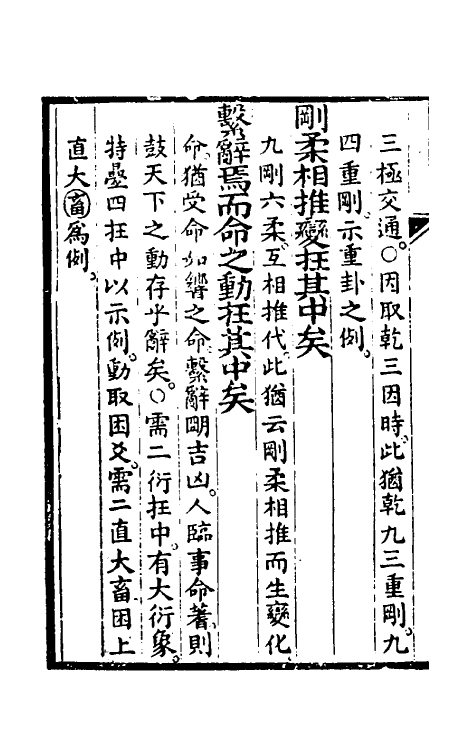 三極交通。○因取乾三因時。此猶乾九三重剛。九
四重剛。示重卦之例。
剛柔相推變在其中矣
九剛六柔。互相推代。此猶云剛柔相推而生變化
繫辭焉而命之動在其中矣
命。猶受命如響之命。繫辭明吉凶。人臨事命蓍。則
鼓天下之動存乎辭矣。○需二衍在中。有大衍象。
特疊四在中以示例。動取困爻。需二直大畜困上
直大畜為例。